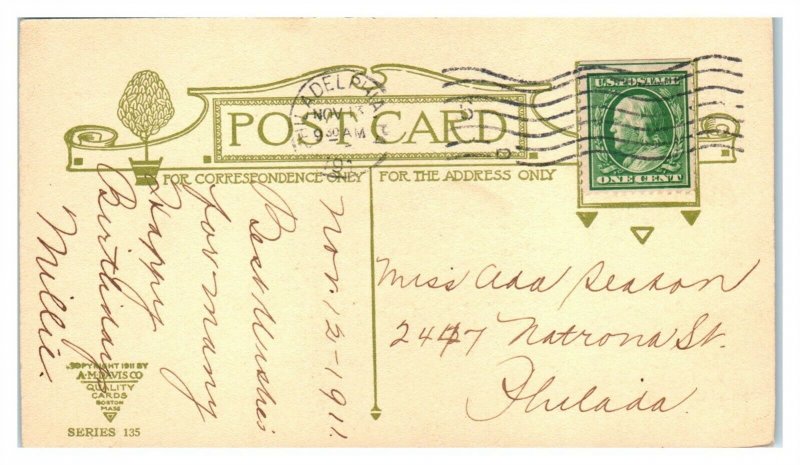 POST CARD
FOR CORRESPONDENCE ONLY
FOR THE ADDRESS ONLY
PHILADELPHIA
NOV 13
930 AM
U.S. POSTAGE
ONE CENT
Nov. 12-1911.
Best Wishes
for many
Happy
Birthdays
Millie.
Miss Ada
2447 Natrona St.
Philada.
COPYRIGHT 1911 BY
A.M. DAVIS CO
QUALITY
CARDS
BOSTON
MASS
SERIES 135